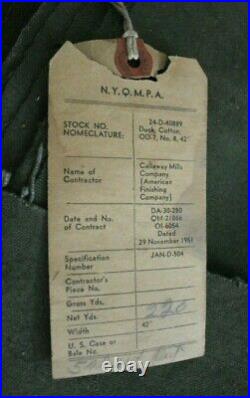 N.Y.Q.M.P.A.
STOCK NO. 24-D-40889
NOMENCLATURE: Duck, Cotton,
OD-7, No. 8, 42"
Name of Callaway Mills
Contractor Company
(American
Finishing
Company)
Date and No. DA-30-280
of Contract QM-21866
OI-6054
Dated
29 November 1951
Specification JAN-D-504
Number
Contractor's
Piece No.
Gross Yds.
Net Yds. 220
Width 42"
U. S. Case or
Bale No.